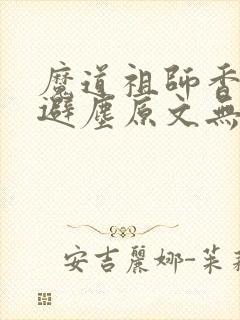 魔道祖師香
避塵原文無
安吉麗娜-茱莉